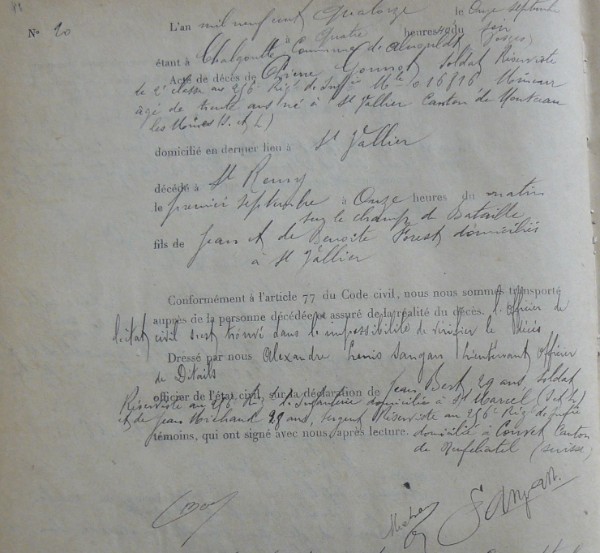 No 20
L'an mil neuf cent Quatorze le Onze septembre
à Quatre heures du soir
étant à Commune de (Vosges)
Acte de décès de Pierre Soldat Réserviste
de 2e classe au 256e Rég. de Inf. Mle 016816 Mineur
âgé de trente ans né à St Vallier Canton de Montceau
les Mines (S. et L)
domicilié en dernier lieu à St Vallier
décédé à St Remy
le premier septembre à Onze heures du matin
sur le champ de Bataille
fils de Jean et de Benoite Forest domiciliés
à St Vallier
Conformément à l'article 77 du Code civil, nous nous sommes transporté
auprès de la personne décédée et assuré de la réalité du décès. L'officier de
l'état civil s'est trouvé dans l'impossibilité de vérifier le décès
Dressé par nous Alexandre Denis Sangan Lieutenant officier
de Détails
officier de l'état civil, sur la déclaration de Jean Bert, 29 ans, Soldat
Réserviste au 256e Rég. d'Infanterie domicilié à St Marcel
et de Jean Michaud 28 ans, Sergent Réserviste au 256e Rég. de Inf.
témoins, qui ont signé avec nous après lecture. domicilié à Couvet Canton
de Neufchatel (Suisse)
Sangan